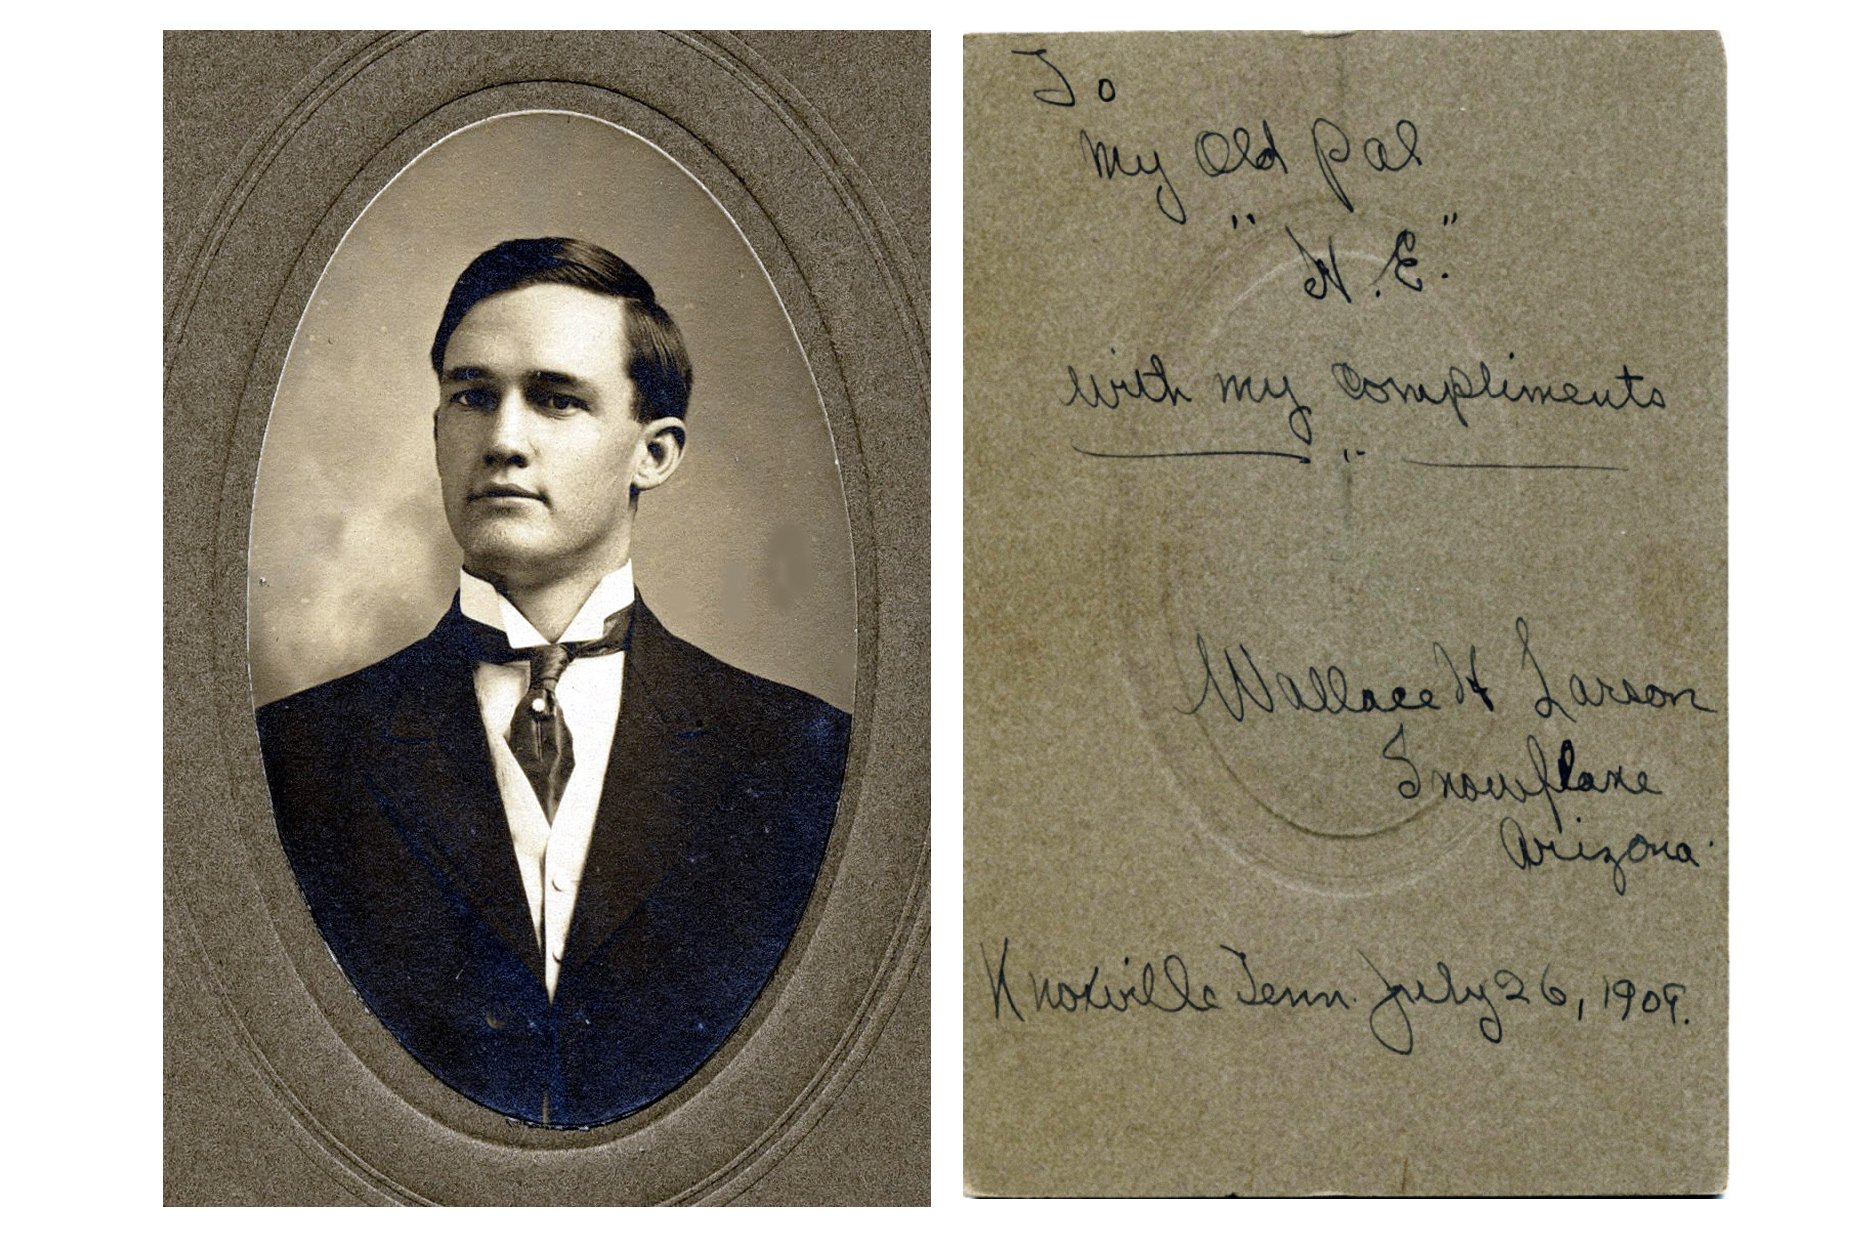 To
My Old Pal
"N.E."
with my compliments
Wallace H Larson
Snowflake
Arizona.
Knoxville Tenn. July 26, 1909.